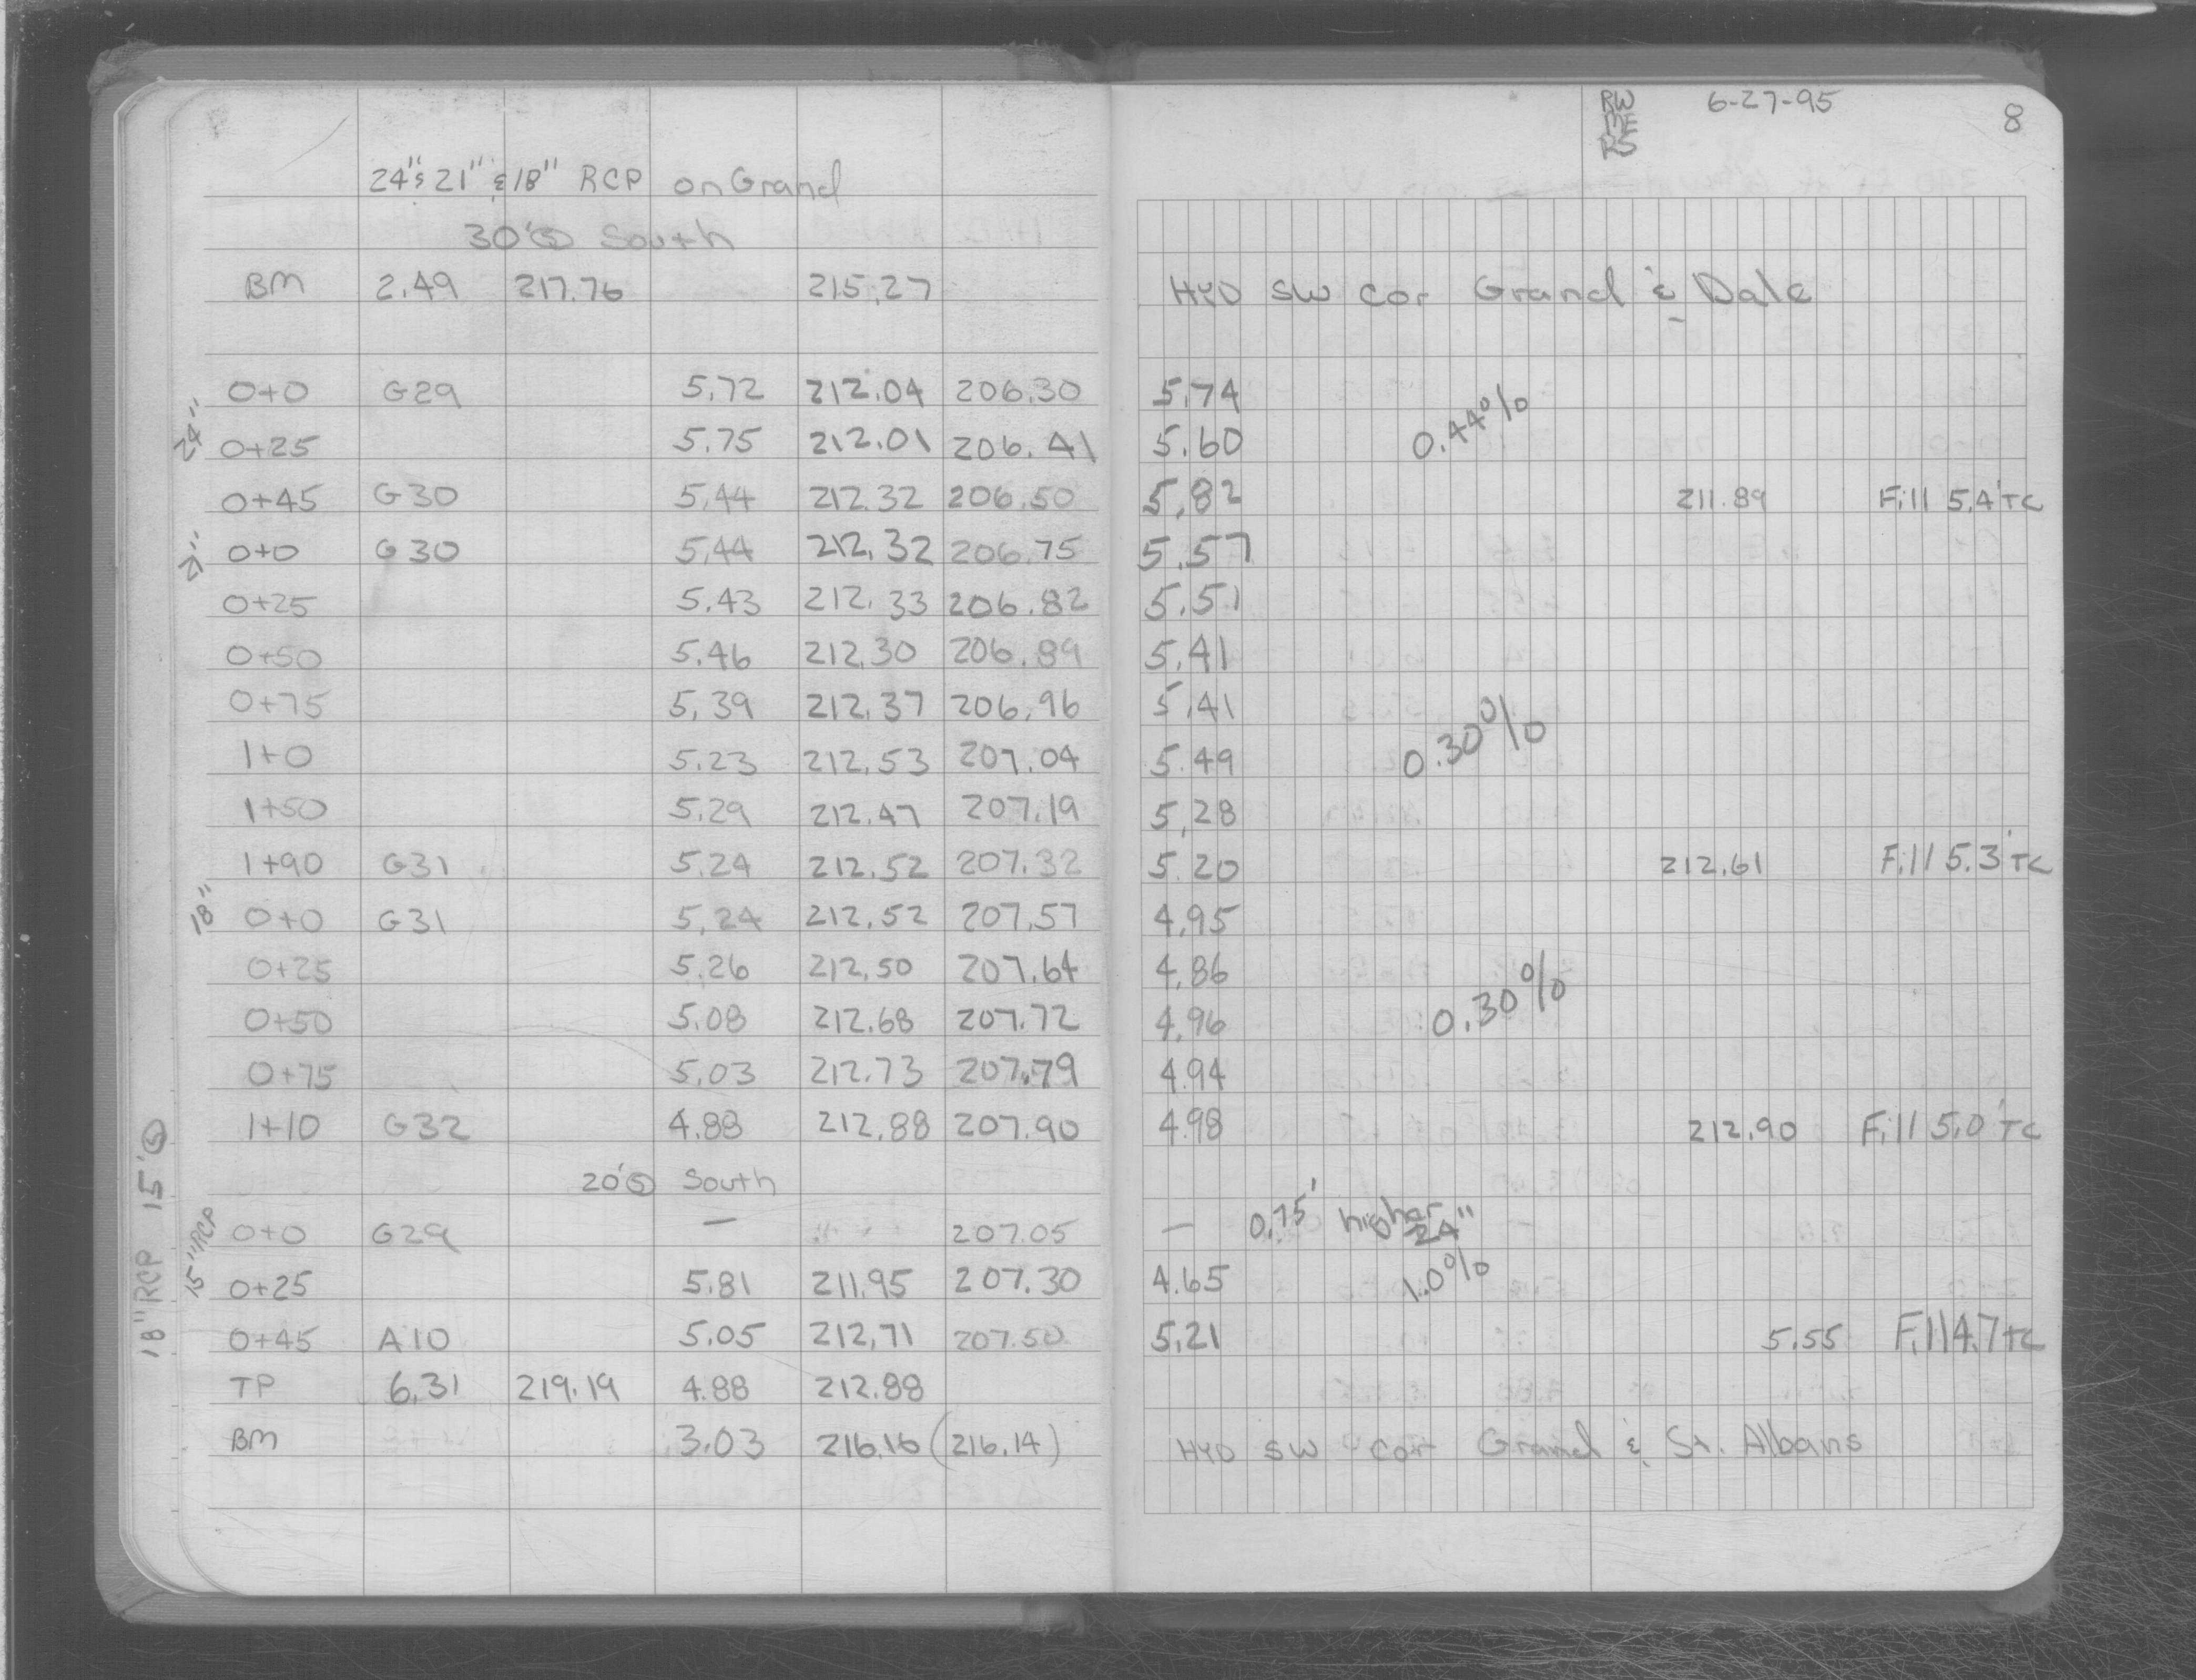 RW 6-27-95 8
RS
24" & 21" & 18" RCP on Grand
30' Ⓢ South
BM 2.49 217.76 215.27 HYD SW Cor Grand & Dale
24" 0+0 G29 5.72 212.04 206.30 5.74 0.44%
0+25 5.75 212.01 206.41 5.60
0+45 G30 5.44 212.32 206.50 5.82 211.89 Fill 5.4' TC
21" 0+0 G30 5.44 212.32 206.75 5.57
0+25 5.43 212.33 206.82 5.51
0+50 5.46 212.30 206.89 5.41
0+75 5.39 212.37 206.96 5.41 0.30%
1+0 5.23 212.53 207.04 5.49
1+50 5.29 212.47 207.19 5.28
1+90 G31 5.24 212.52 207.32 5.20 212.61 Fill 5.3' TC
18" 0+0 G31 5.24 212.52 207.57 4.95
0+25 5.26 212.50 207.64 4.86 0.30%
0+50 5.08 212.68 207.72 4.96
0+75 5.03 212.73 207.79 4.94
1+10 G32 4.88 212.88 207.90 4.98 212.90 Fill 5.0' TC
18" RCP 15' Ⓢ
20' Ⓢ South
15" RCP 0+0 G29 — 207.05 — 0.75' higher 24"
0+25 5.81 211.95 207.30 4.65 1.0%
0+45 A10 5.05 212.71 207.50 5.21 5.55 Fill 4.7 TC
TP 6.31 219.19 4.88 212.88
BM 3.03 216.16 (216.14) HYD SW Cor Grand & St. Albans